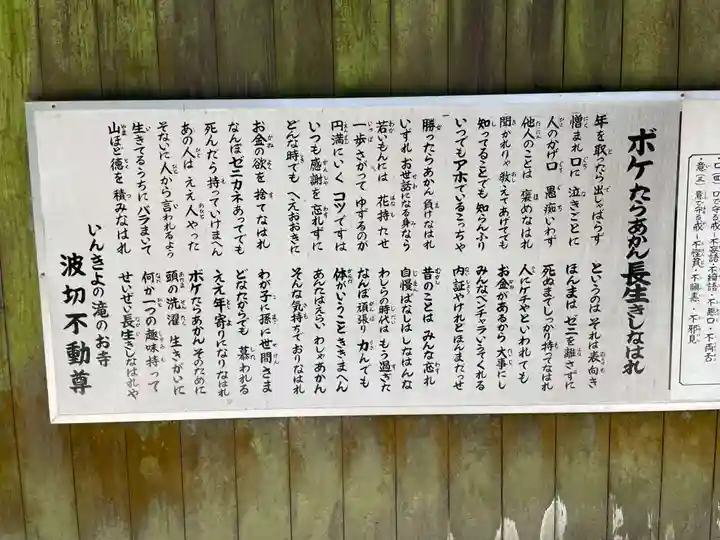 ボケたらあかん長生きしなはれ
年を取ったら出しゃばらず
憎まれ口に 泣きごとに
人のかげ口 愚痴いわず
他人のことは 褒めなはれ
聞かれりゃ 教えてあげてでも
知ってることでも 知らんふり
いつでもアホでいるこっちゃ
勝ったらあかん 負けなはれ
いずれ お世話になる身なら
若いもんには 花持たせ
一歩さがって ゆずるのが
円満にいく コツですは
いつも感謝を 忘れずに
どんな時でも へえおおきに
お金の欲を 捨てなはれ
なんぼゼニカネあってても
死んだら持っていけまへん
あの人は ええ人やった
そないに人から 言われるよう
生きてるうちに バラまいて
山ほど徳を 積みなはれ
というのは それは表向き
ほんまは ゼニを離さずに
死ぬまでしっかり持ってなはれ
人にケチやといわれても
お金があるから 大事にし
みんなベンチャラいうてくれる
内証やけれどほんまだっせ
昔のことは みんな忘れ
自慢ばなしは しなはんな
わしらの時代は もう過ぎた
なんぼ頑張り 力んでも
体がいうこときまへん
あんたはえらい わしゃあかん
そんな気持ちでおりなはれ
わが子に孫に 世間さま
どなたからでも 慕われる
ええ年寄りになりなはれ
ボケたらあかん そのために
頭の洗濯 生きがいに
何か一つの 趣味持って
せいぜい長生きしなはれや
いんきょの滝のお寺
波切不動尊
口で守る戒－不妄語・不綺語・不悪口・不両舌
意で守る戒－不慳貪・不瞋恚・不邪見